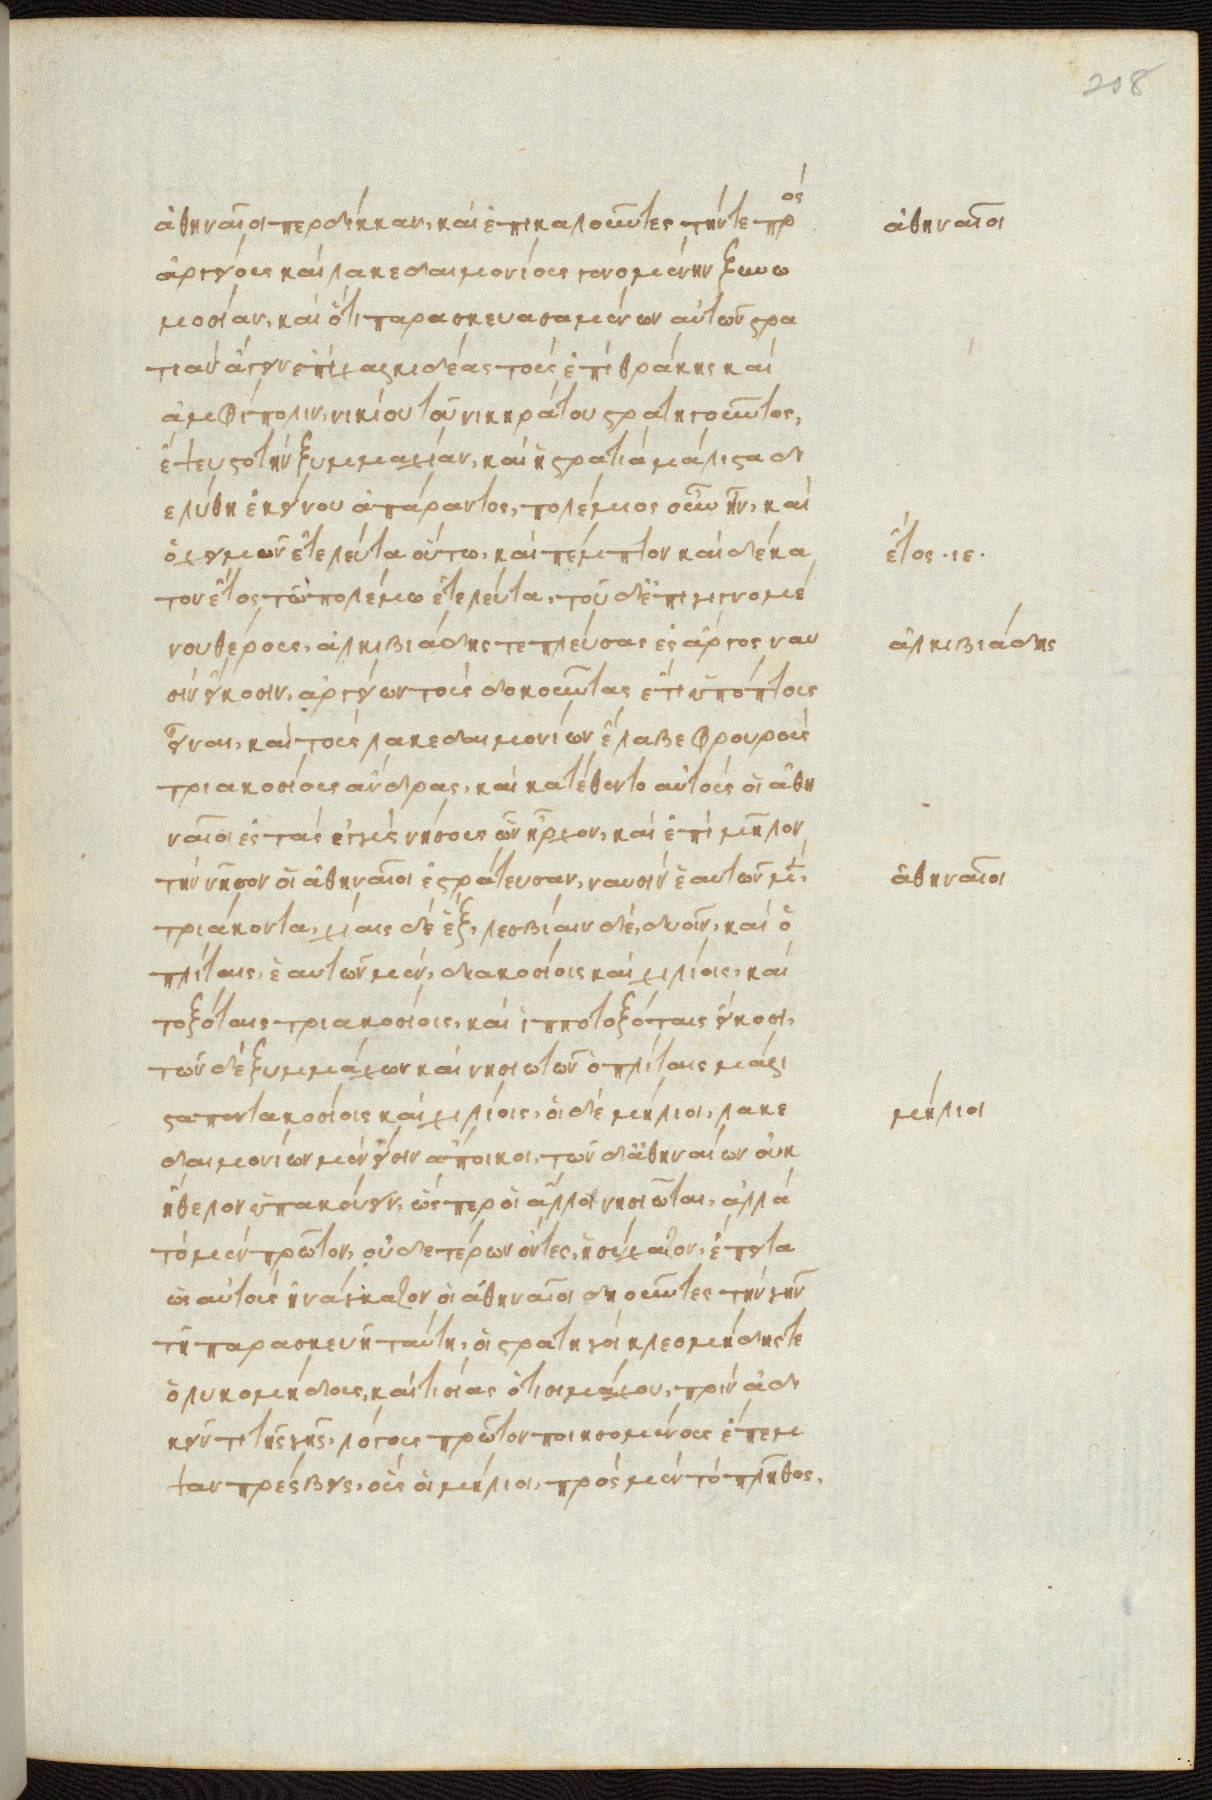 208
ἀθηναῖοι περδίκκαν, καὶ ἐπικαλοῦντες τήν τε πρὸς
ἀθηναῖοι
ἀργείους καὶ λακεδαιμονίους γενομένην ξυνω
μοσίαν, καὶ ὅτι παρασκευασαμένων αὐτῶν στρα
τιὰν ἄγειν ἐπὶ χαλκιδέας τοὺς ἐπὶ θράκης καὶ
ἀμφίπολιν, νικίου τοῦ νικηράτου στρατηγοῦντος,
ἔψευστο τὴν ξυμμαχίαν, καὶ ἡ στρατιὰ μάλιστα δι
ελύθη ἐκείνου ἀπάραντος, πολέμιος οὖν ἦν, καὶ
ὁ χειμὼν ἐτελεύτα οὕτω, καὶ πέμπτον καὶ δέκα
ἔτος ·ιε·
τον ἔτος τῷ πολέμω ἐτελεύτα, τοῦ δ' ἐπιγιγνομέ
νου θέρους, ἀλκιβιάδης τε πλεύσας ἐς ἄργος ναυ
ἀλκιβιάδης
σὶν εἴκοσιν, ἀργείων τοὺς δοκοῦντας ἔτι ὑπόπτους
εἶναι, καὶ τοὺς λακεδαιμονίων ἔλαβε φρουροὺς
τριακοσίους ἄνδρας, καὶ κατέθεντο αὐτοὺς οἱ ἀθη
ναῖοι ἐς τὰς ἐγγὺς νήσους ὧν ἦρχον, καὶ ἐπὶ μῆλον
τὴν νῆσον οἱ ἀθηναῖοι ἐστράτευσαν, ναυσὶν ἑαυτῶν μὲν,
ἀθηναῖοι
τριάκοντα, χίαις δὲ ἓξ, λεσβίαιν δὲ, δυοῖν, καὶ ὁ
πλίταις, ἑαυτῶν μὲν, διακοσίοις καὶ χιλίοις, καὶ
τοξόταις τριακοσίοις, καὶ ἱπποτοξόταις εἴκοσι,
τῶν δὲ ξυμμάχων καὶ νησιωτῶν ὁπλίταις μάλι
στα πεντακοσίοις καὶ χιλίοις, οἱ δὲ μήλιοι, λακε
μήλιοι
δαιμονίων μέν εἰσιν ἄποικοι, τῶν δ' ἀθηναίων οὐκ
ἤθελον ὑπακούειν, ὥσπερ οἱ ἄλλοι νησιῶται, ἀλλὰ
τὸ μὲν πρῶτον, οὐδετέρων ὄντες, ἡσύχαζον, ἔπειτα
ὡς αὐτοὺς ἠνάγκαζον οἱ ἀθηναῖοι δηοῦντες τὴν γῆν
τῆ παρασκευῆ ταύτη, οἱ στρατηγοὶ κλεομήδης τε
ὁ λυκομήδους, καὶ τισίας ὁ τισιμάχου, πρὶν ἀδι
κεῖν τι τῆς γῆς, λόγους πρῶτον ποιησομένους ἔπεμ
ψαν πρέσβεις, οὓς οἱ μήλιοι, πρὸς μὲν τὸ πλῆθος,